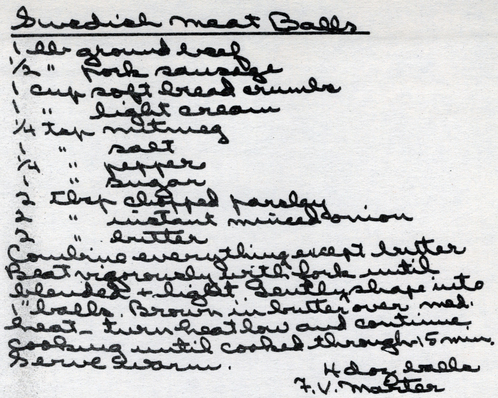 Swedish Meat Balls
1 lb ground beef
1/2 " pork sausage
1 cup soft bread crumbs
1 " light cream
1/4 tsp nutmeg
1 " salt
1/4 " pepper
1 " sugar
2 tbsp chopped parsley
2 " instant minced onion
2 " butter
Combine everything except butter
Beat vigorously with fork until
blended + light. Gently shape into
1" balls. Brown in butter over med.
heat - turn heat low and continue
cooking until cooked through. 15 min.
Serve warm.
4 doz balls
F. V. Marter